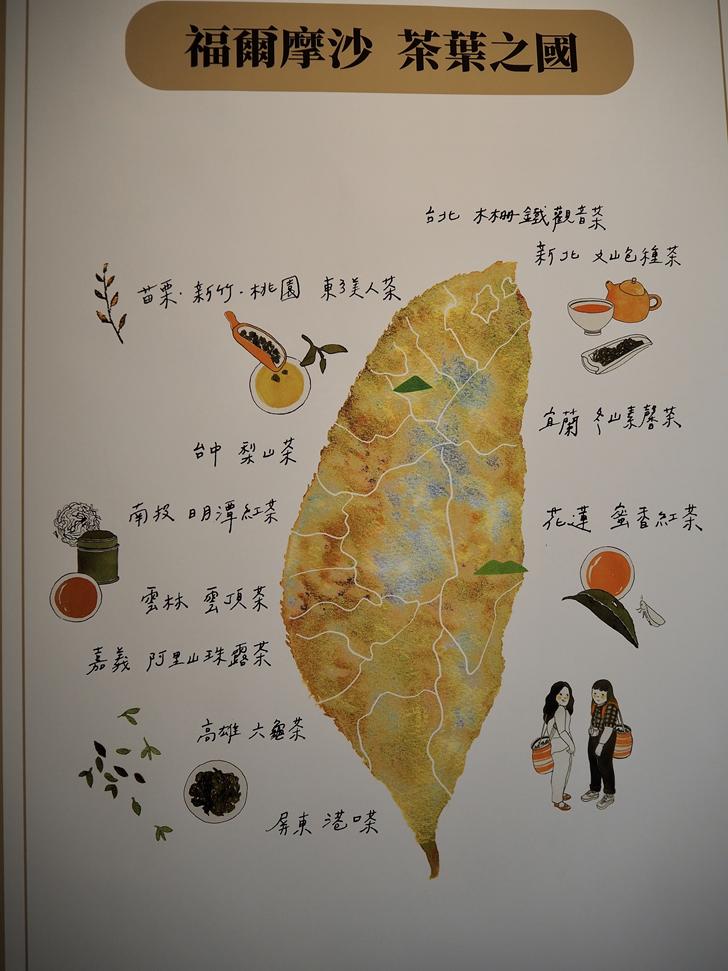 福爾摩沙 茶葉之國
台北 木柵鐵觀音茶
新北 文山包種茶
苗栗·新竹·桃園 東方美人茶
宜蘭 冬山素馨茶
台中 梨山茶
南投 明潭紅茶
花蓮 蜜香紅茶
雲林 雲頂茶
嘉義 阿里山珠露茶
高雄 六龜茶
屏東 港口茶